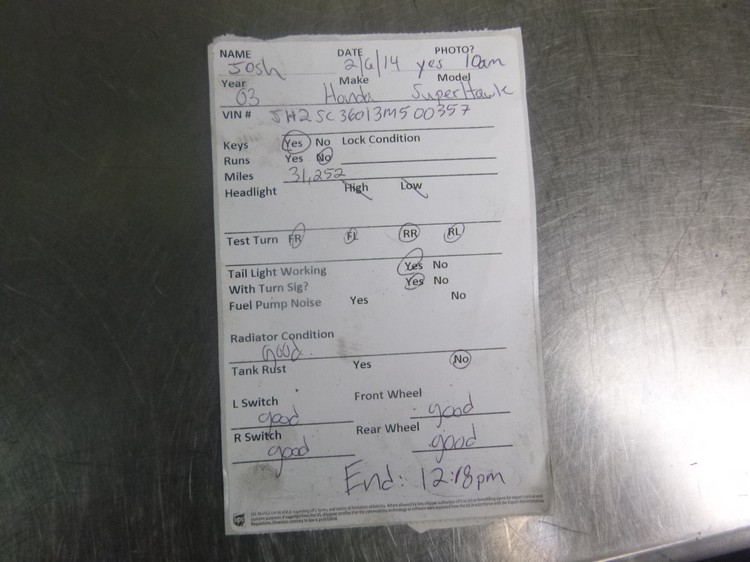 NAME DATE PHOTO?
Josh 2/6/14 yes 10am
Year Make Model
03 Honda SuperHawk
VIN # JH2SC36013M500357
Keys Yes No Lock Condition
Runs Yes No
Miles 31,252
Headlight High Low
Test Turn FR FL RR RL
Tail Light Working Yes No
With Turn Sig? Yes No
Fuel Pump Noise Yes No
Radiator Condition
Good
Tank Rust Yes No
L Switch Front Wheel
good good
R Switch Rear Wheel
good good
End: 12:18pm